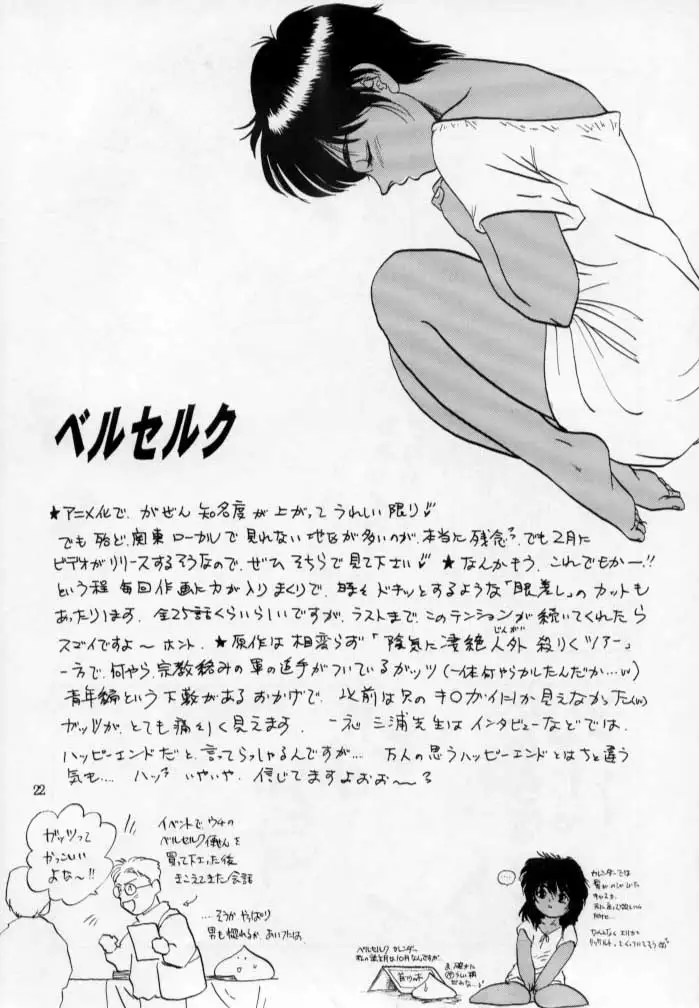 ベルセルク
★アニメ化で、がぜん 知名度が上がって うれしい限り
でも 殆ど、関東ローカルで見れない地区が多いのが、本当に残念、でも2月に
ビデオがリリースするそうなので、ぜひ そちらで見て下さい ★なんかもう、これでもかー!!
という程 毎回作画に力が入りまくりで、時々ドキッとするような「眼差し」のカットも
あったりします。全25話くらいらしいですが、ラストまで、このテンションが続いてくれたら
スゴイですよ〜ホント。★原作は相変らず「陰気に凄絶人外 殺りくツアー」
じんがい
一方で、何やら、宗教絡みの軍の追手がついているガッツ(一体何やらかしたんだか…
青年編という下敷があるおかげで、以前は只のキ○ガイにしか見えなかった
ガッツが、とても痛々しく見えます。一応、三浦先生はインタビューなどでは、
ハッピーエンドだと、言ってらっしゃるんですが… 万人の思うハッピーエンドとはちと違う
気も…. ハッ いやいや、信じてますよおお〜
22
ガッツって
かっこいい
よな〜!!
イベントで、ウチの
ベルセルク便せんを
買って下さった後
きこえてきた会話
….そうか やっぱり
男も惚れるか、あいつには、
…
ベルセルク カレンダー
私の誕生月は10月なんですが
カレンダーでは